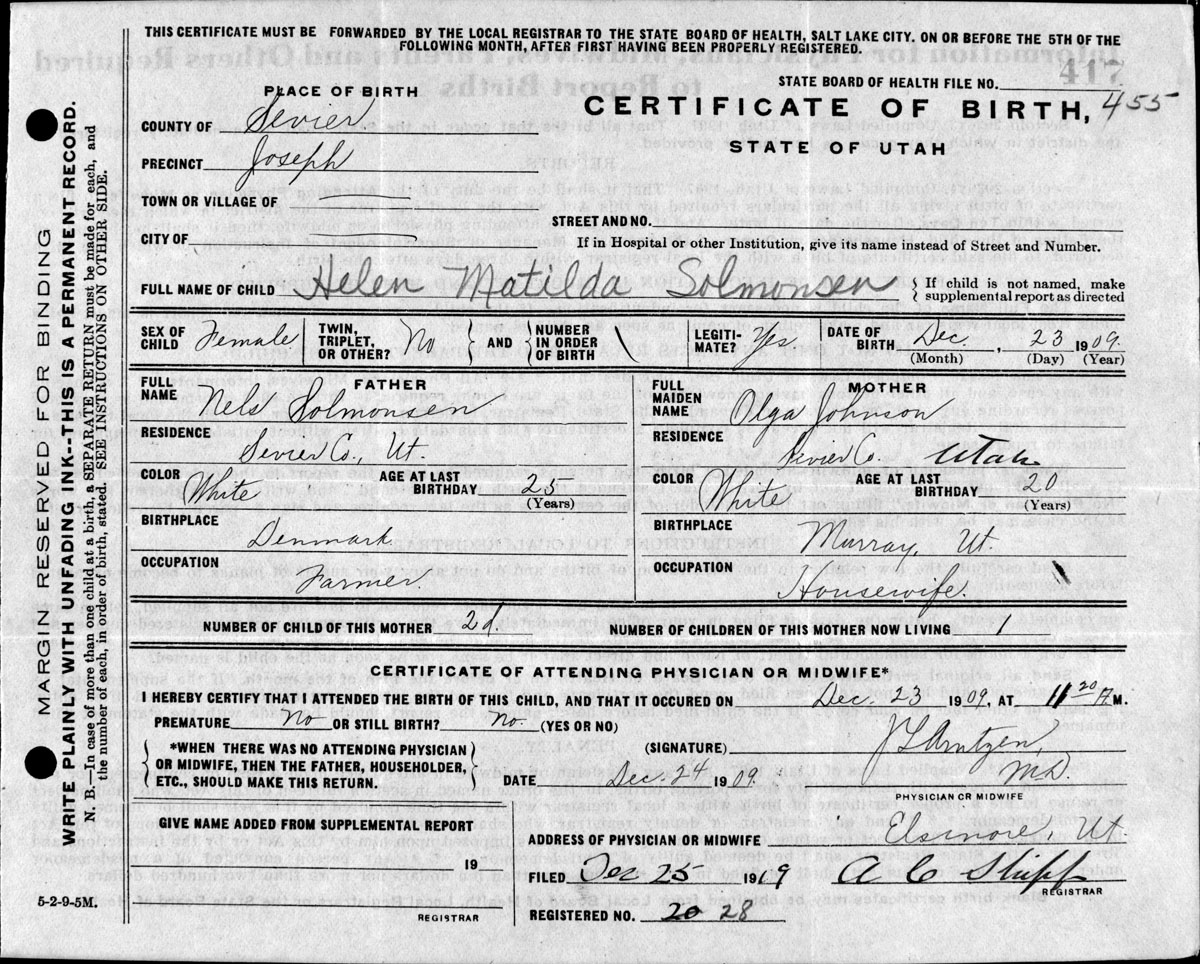 THIS CERTIFICATE MUST BE FORWARDED BY THE LOCAL REGISTRAR TO THE STATE BOARD OF HEALTH, SALT LAKE CITY, ON OR BEFORE THE 5TH OF THE
FOLLOWING MONTH, AFTER FIRST HAVING BEEN PROPERLY REGISTERED.
STATE BOARD OF HEALTH FILE NO.
PLACE OF BIRTH
CERTIFICATE OF BIRTH, 455
COUNTY OF Sevier
STATE OF UTAH
PRECINCT Joseph
TOWN OR VILLAGE OF
STREET AND NO.
CITY OF
If in Hospital or other Institution, give its name instead of Street and Number.
FULL NAME OF CHILD Helen Matilda Solmonsen { If child is not named, make
supplemental report as directed
SEX OF CHILD Female TWIN, TRIPLET, OR OTHER? No { AND } NUMBER IN ORDER OF BIRTH LEGITI- MATE? Yes DATE OF BIRTH Dec. , 23 1909.
(Month) (Day) (Year)
FATHER
FULL NAME Nels Solmonsen
RESIDENCE
Sevier Co., Ut.
COLOR White AGE AT LAST BIRTHDAY 25
(Years)
BIRTHPLACE
Denmark
OCCUPATION
Farmer
MOTHER
FULL MAIDEN NAME Olga Johnson
RESIDENCE
Sevier Co. Utah
COLOR White AGE AT LAST BIRTHDAY 20
(Years)
BIRTHPLACE
Murray, Ut.
OCCUPATION
Housewife.
NUMBER OF CHILD OF THIS MOTHER 2d. NUMBER OF CHILDREN OF THIS MOTHER NOW LIVING 1
CERTIFICATE OF ATTENDING PHYSICIAN OR MIDWIFE*
I HEREBY CERTIFY THAT I ATTENDED THE BIRTH OF THIS CHILD, AND THAT IT OCCURED ON Dec. 23 1909, AT 11 20 M.
PREMATURE No OR STILL BIRTH? No. (YES OR NO)
*WHEN THERE WAS NO ATTENDING PHYSICIAN
OR MIDWIFE, THEN THE FATHER, HOUSEHOLDER,
ETC., SHOULD MAKE THIS RETURN.
(SIGNATURE)
M.D.
DATE Dec. 24 1909.
PHYSICIAN OR MIDWIFE
GIVE NAME ADDED FROM SUPPLEMENTAL REPORT
19
REGISTRAR
5-2-9-5M.
ADDRESS OF PHYSICIAN OR MIDWIFE Elsinore, Ut.
FILED Dec 25 1909 A C
REGISTRAR
REGISTERED NO. 28
MARGIN RESERVED FOR BINDING
WRITE PLAINLY WITH UNFADING INK--THIS IS A PERMANENT RECORD.
N. B.—In case of more than one child at a birth, a SEPARATE RETURN must be made for each, and
the number of each, in order of birth, stated. SEE INSTRUCTIONS ON OTHER SIDE.